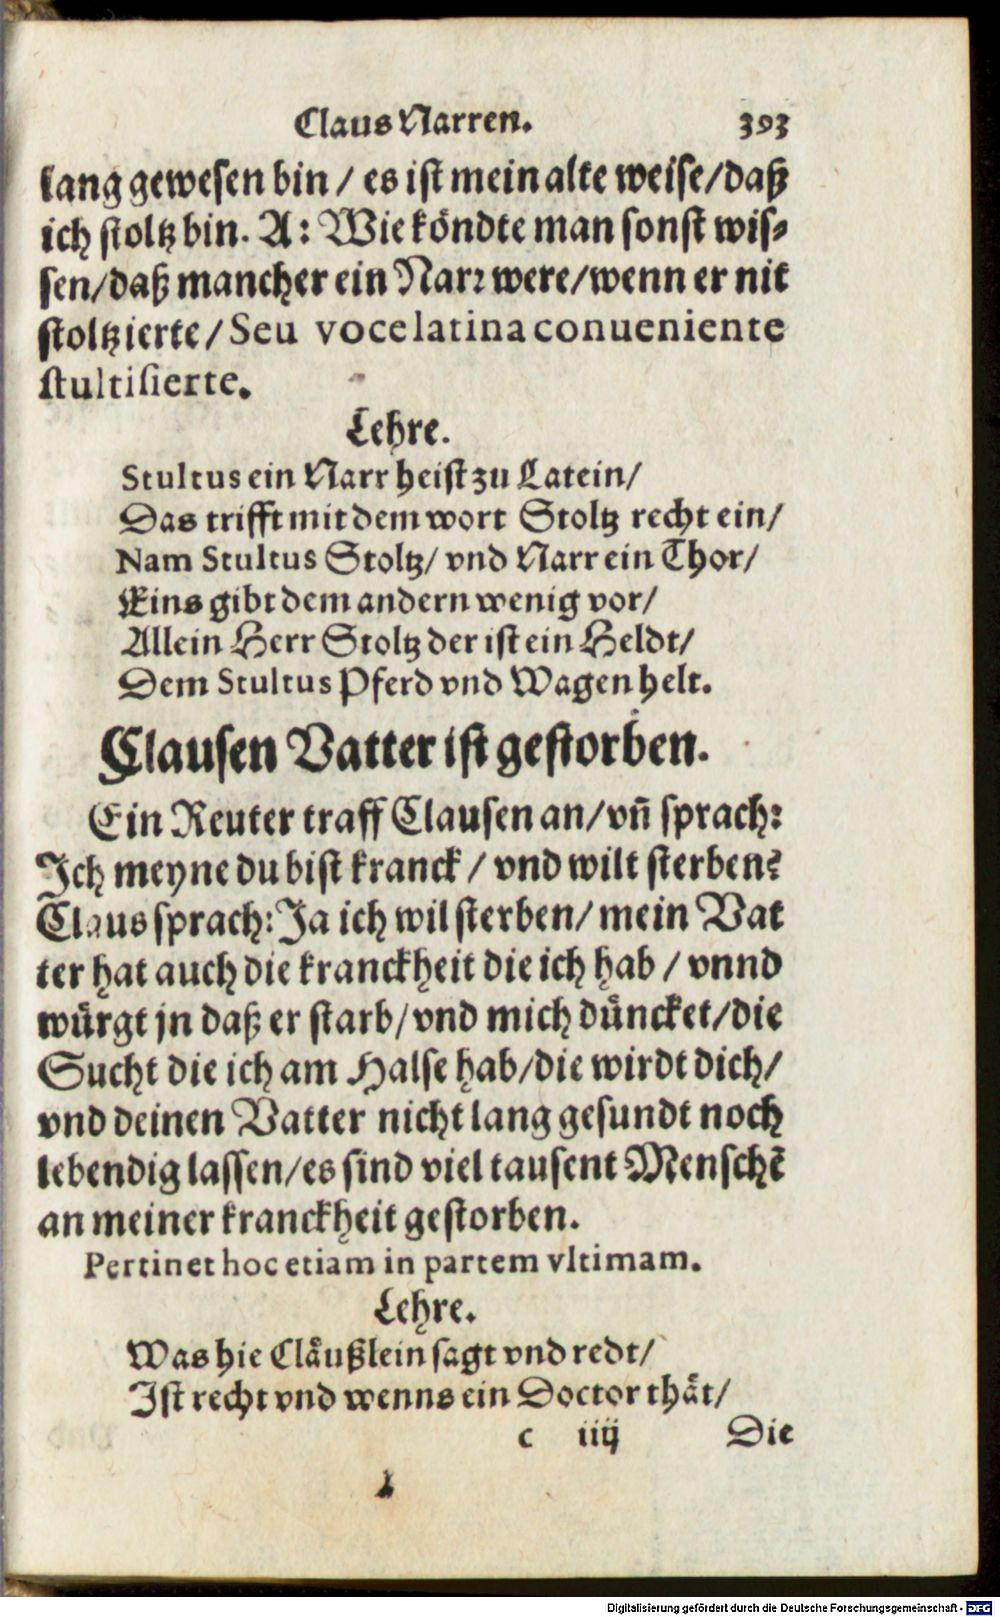 Claus Narren. 393
lang gewesen bin / es ist mein alte weise/daß
ich stoltz bin. A: Wie koͤndte man sonst wis-
sen/daß mancher ein Narr were/wenn er nit
stoltzierte/Seu voce latina conueniente
stultisierte.
Lehre.
Stultus ein Narr heist zu Latein/
Das trifft mit dem wort Stoltz recht ein/
Nam Stultus Stoltz/ vnd Narr ein Thor/
Eins gibt dem andern wenig vor/
Allein Herr Stoltz der ist ein Heldt/
Dem Stultus Pferd vnd Wagen helt.
Clausen Vatter ist gestorben.
Ein Reuter traff Clausen an/vñ sprach:
Ich meyne du bist kranck / vnd wilt sterben?
Claus sprach: Ja ich wil sterben/ mein Vat
ter hat auch die kranckheit die ich hab / vnnd
wuͤrgt jn daß er starb/vnd mich duͤncket/die
Sucht die ich am Halse hab/die wirdt dich/
vnd deinen Vatter nicht lang gesundt noch
lebendig lassen/es sind viel tausent Menschẽ
an meiner kranckheit gestorben.
Pertinet hoc etiam in partem vltimam.
Lehre.
Was hie Claͤußlein sagt vnd redt/
Ist recht vnd wenns ein Doctor thaͤt/
c iiij Die
Digitalisierung gefördert durch die Deutsche Forschungsgemeinschaft - DFG